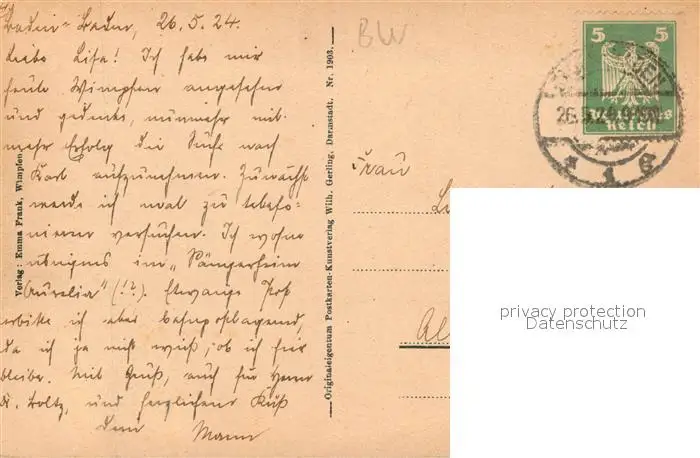 Baden-Baden, 26.5.24.
Liebe Lisa! Ich habe mir
heute Wimpfen angesehen
und gedenke, nunmehr mit
mehr Erfolg die Suche nach
Karl aufzunehmen. Zunächst
werde ich mal zu telefo-
nieren versuchen. Ich wohne
übrigens im „Sängerheim
Aurelia" (!?). Etwaige Post
erbitte ich aber
da ich ja nicht weiß, ob ich hier
bleibe. Mit Gruß, auch für Herrn
K. Boltz, und herzlichem Kuß
Dein Mann
Verlag: Emma Frank, Wimpfen
Originaleigentum Postkarten-Kunstverlag Wilh. Gerling, Darmstadt. Nr. 1903.
BW
5 5
Reich
26.5.24
Frau
privacy protection
Datenschutz